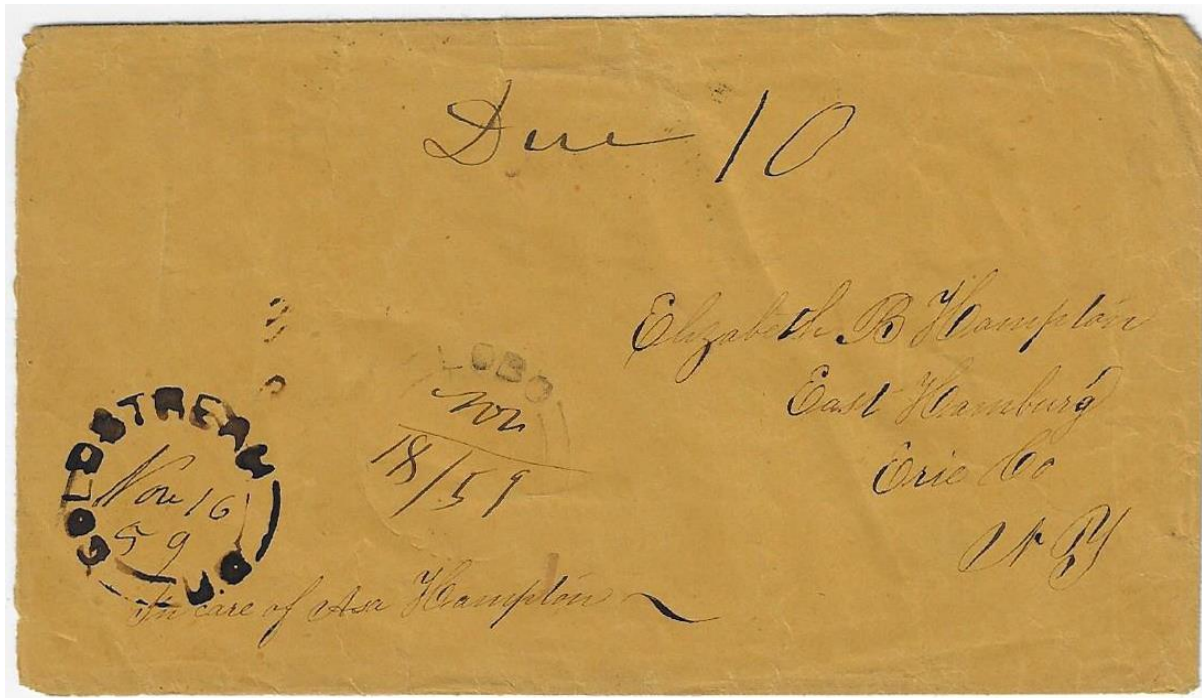 Due 10
Elizabeth B Hampton
East Hamburg
Erie Co
N Y
LOBO
Nov
18/59
GOLDSTREAM
Nov 16
59
In care of Asa Hampton